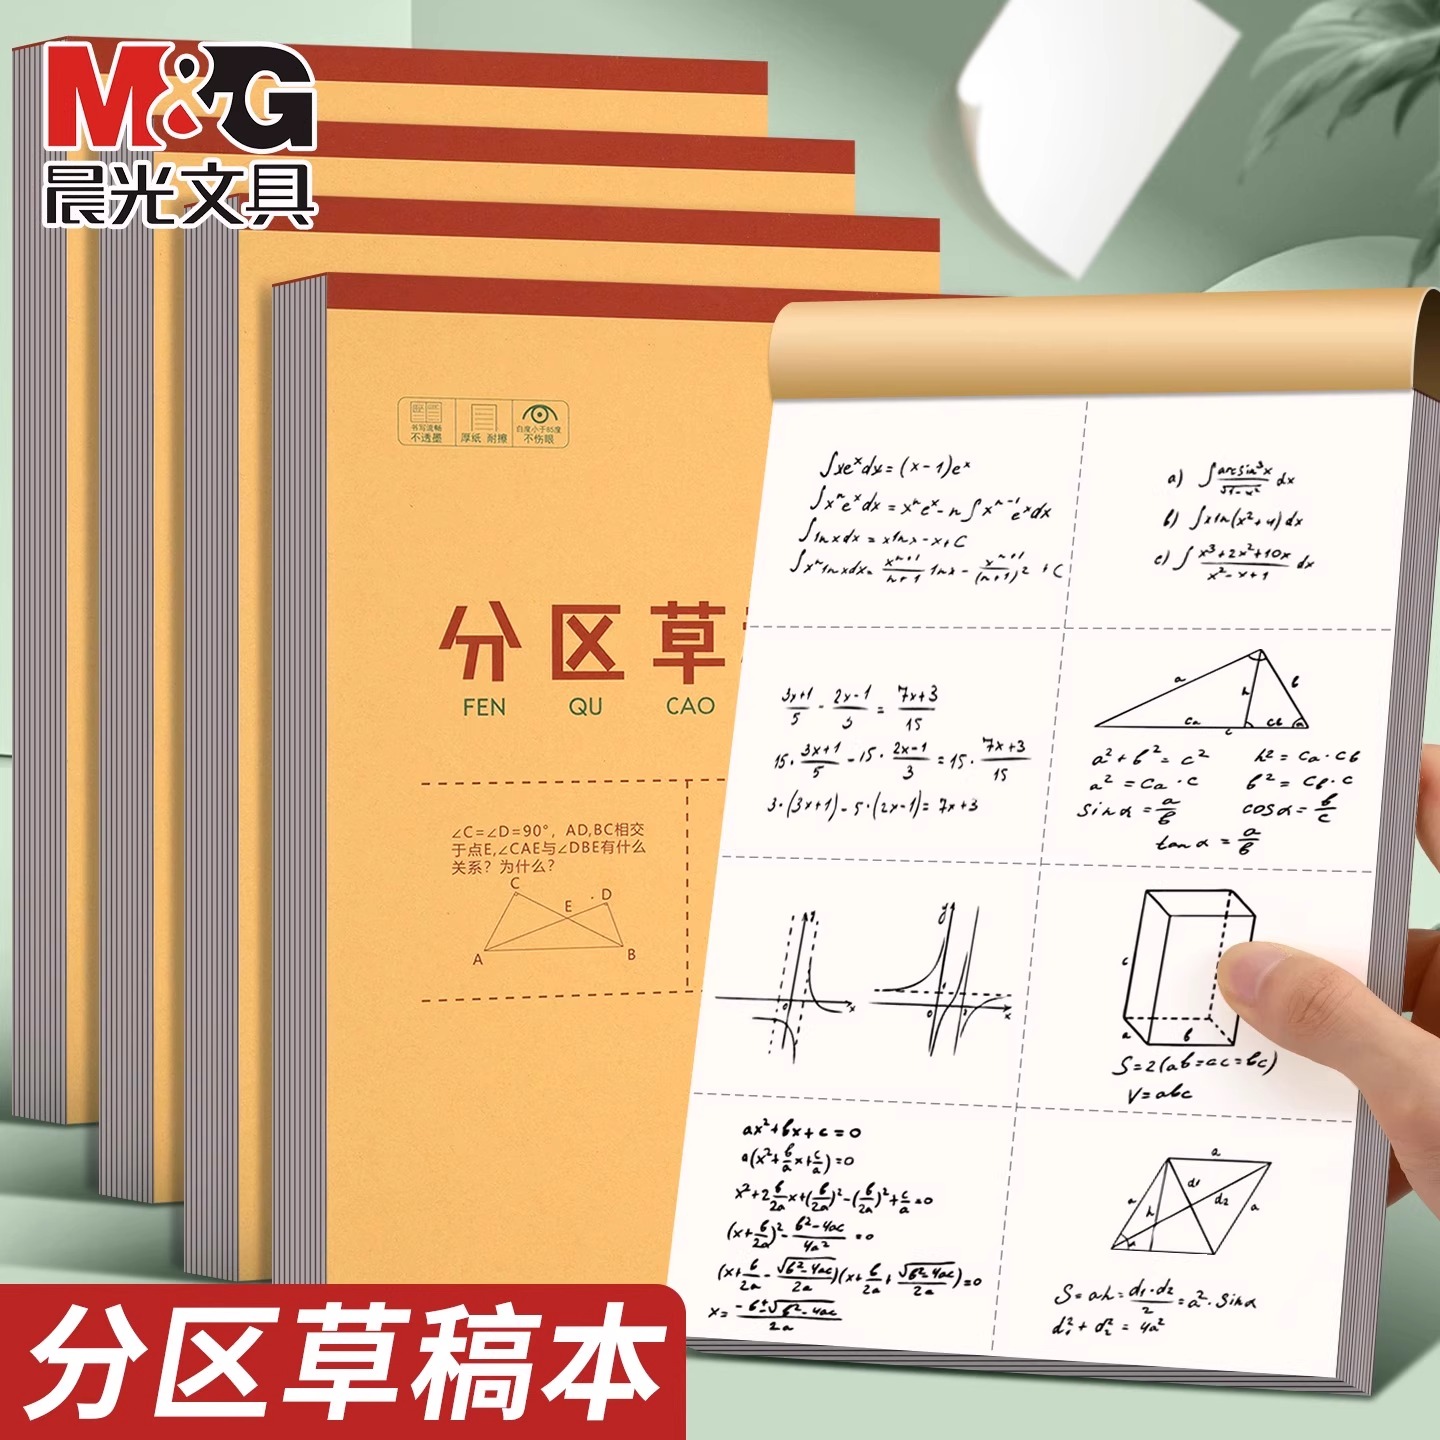 M&G
晨光文具
书写流畅
不透墨
厚纸 耐擦
白度小于85度
不伤眼
分区草
FEN QU CAO
∠C=∠D=90°，AD,BC相交
于点E,∠CAE与∠DBE有什么
关系？为什么？
C
E
D
A
B
∫xeˣdx=(x-1)eˣ
∫xⁿeˣdx=xⁿeˣ-n∫xⁿ⁻¹eˣdx
∫lnxdx=xlnx-x+C
∫xⁿlnxdx=xⁿ⁺¹/n+1 lnx-xⁿ⁺¹/(n+1)²+C
a) ∫arcsin³x/√1-x² dx
b) ∫xln(x²+4)dx
c) ∫x³+2x²+10x/x²-x+1 dx
3x+1/5-2x-1/3=7x+3/15
15·3x+1/5-15·2x-1/3=15·7x+3/15
3·(3x+1)-5·(2x-1)=7x+3
a h b
ca cb
c
a²+b²=c² h²=ca·cb
a²=ca·c b²=cb·c
sinα=a/b cosα=b/c
tanα=a/b
y
0 x
y
1
0 2 x
c
a b
S=2(ab=ac=bc)
V=abc
ax²+bx+c=0
a(x²+b/a x+c/a)=0
x²+2b/2a x+(b/2a)²-(b/2a)²+c/a=0
(x+b/2a)²-b²-4ac/4a²=0
(x+b/2a-√b²-4ac/2a)(x+b/2a+√b²-4ac/2a)=0
x=-b±√b²-4ac/2a
a
d1
a h d2 a
α
S=ah=d1·d2/2=a²·sinα
d1²+d2²=4a²
分区草稿本